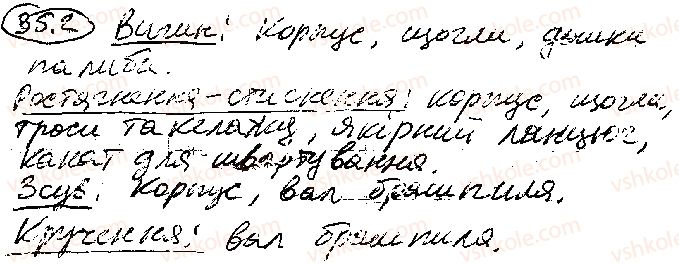 35.2 Вигин: Корпус, щогли, дошки
палиби.
Розтягнення-стиснення: корпус, щогли,
троси такелажу, якірний ланцюг,
канат для швартування.
Зсув: Корпус, вал брашпиля.
Кручення: вал брашпиля.